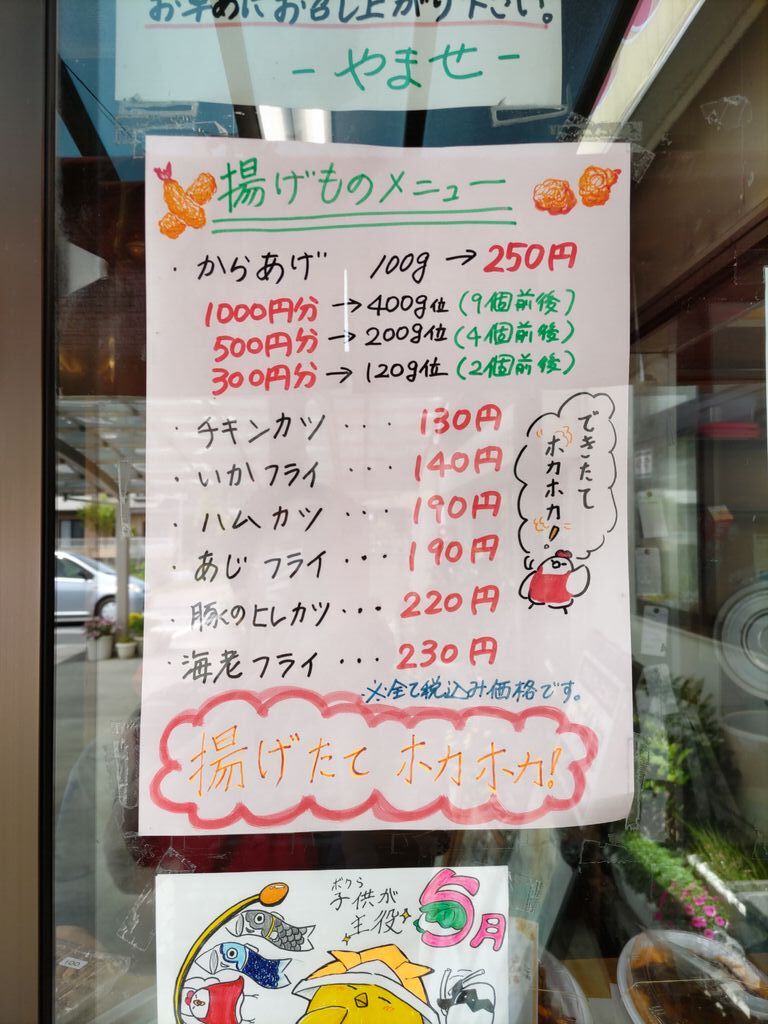 お早めにお召し上がり下さい。
- やませ -
揚げものメニュー
・からあげ 100g → 250円
1000円分 → 400g位 (9個前後)
500円分 → 200g位 (4個前後)
300円分 → 120g位 (2個前後)
・チキンカツ ・・・ 130円
・いかフライ ・・・ 140円
・ハムカツ ・・・ 190円
・あじフライ ・・・ 190円
・豚のヒレカツ ・・・ 220円
・海老フライ ・・・ 230円
できたて
ホカホカ!
※全て税込み価格です。
揚げたて ホカホカ!
ボクら
子供が
主役
5月
100